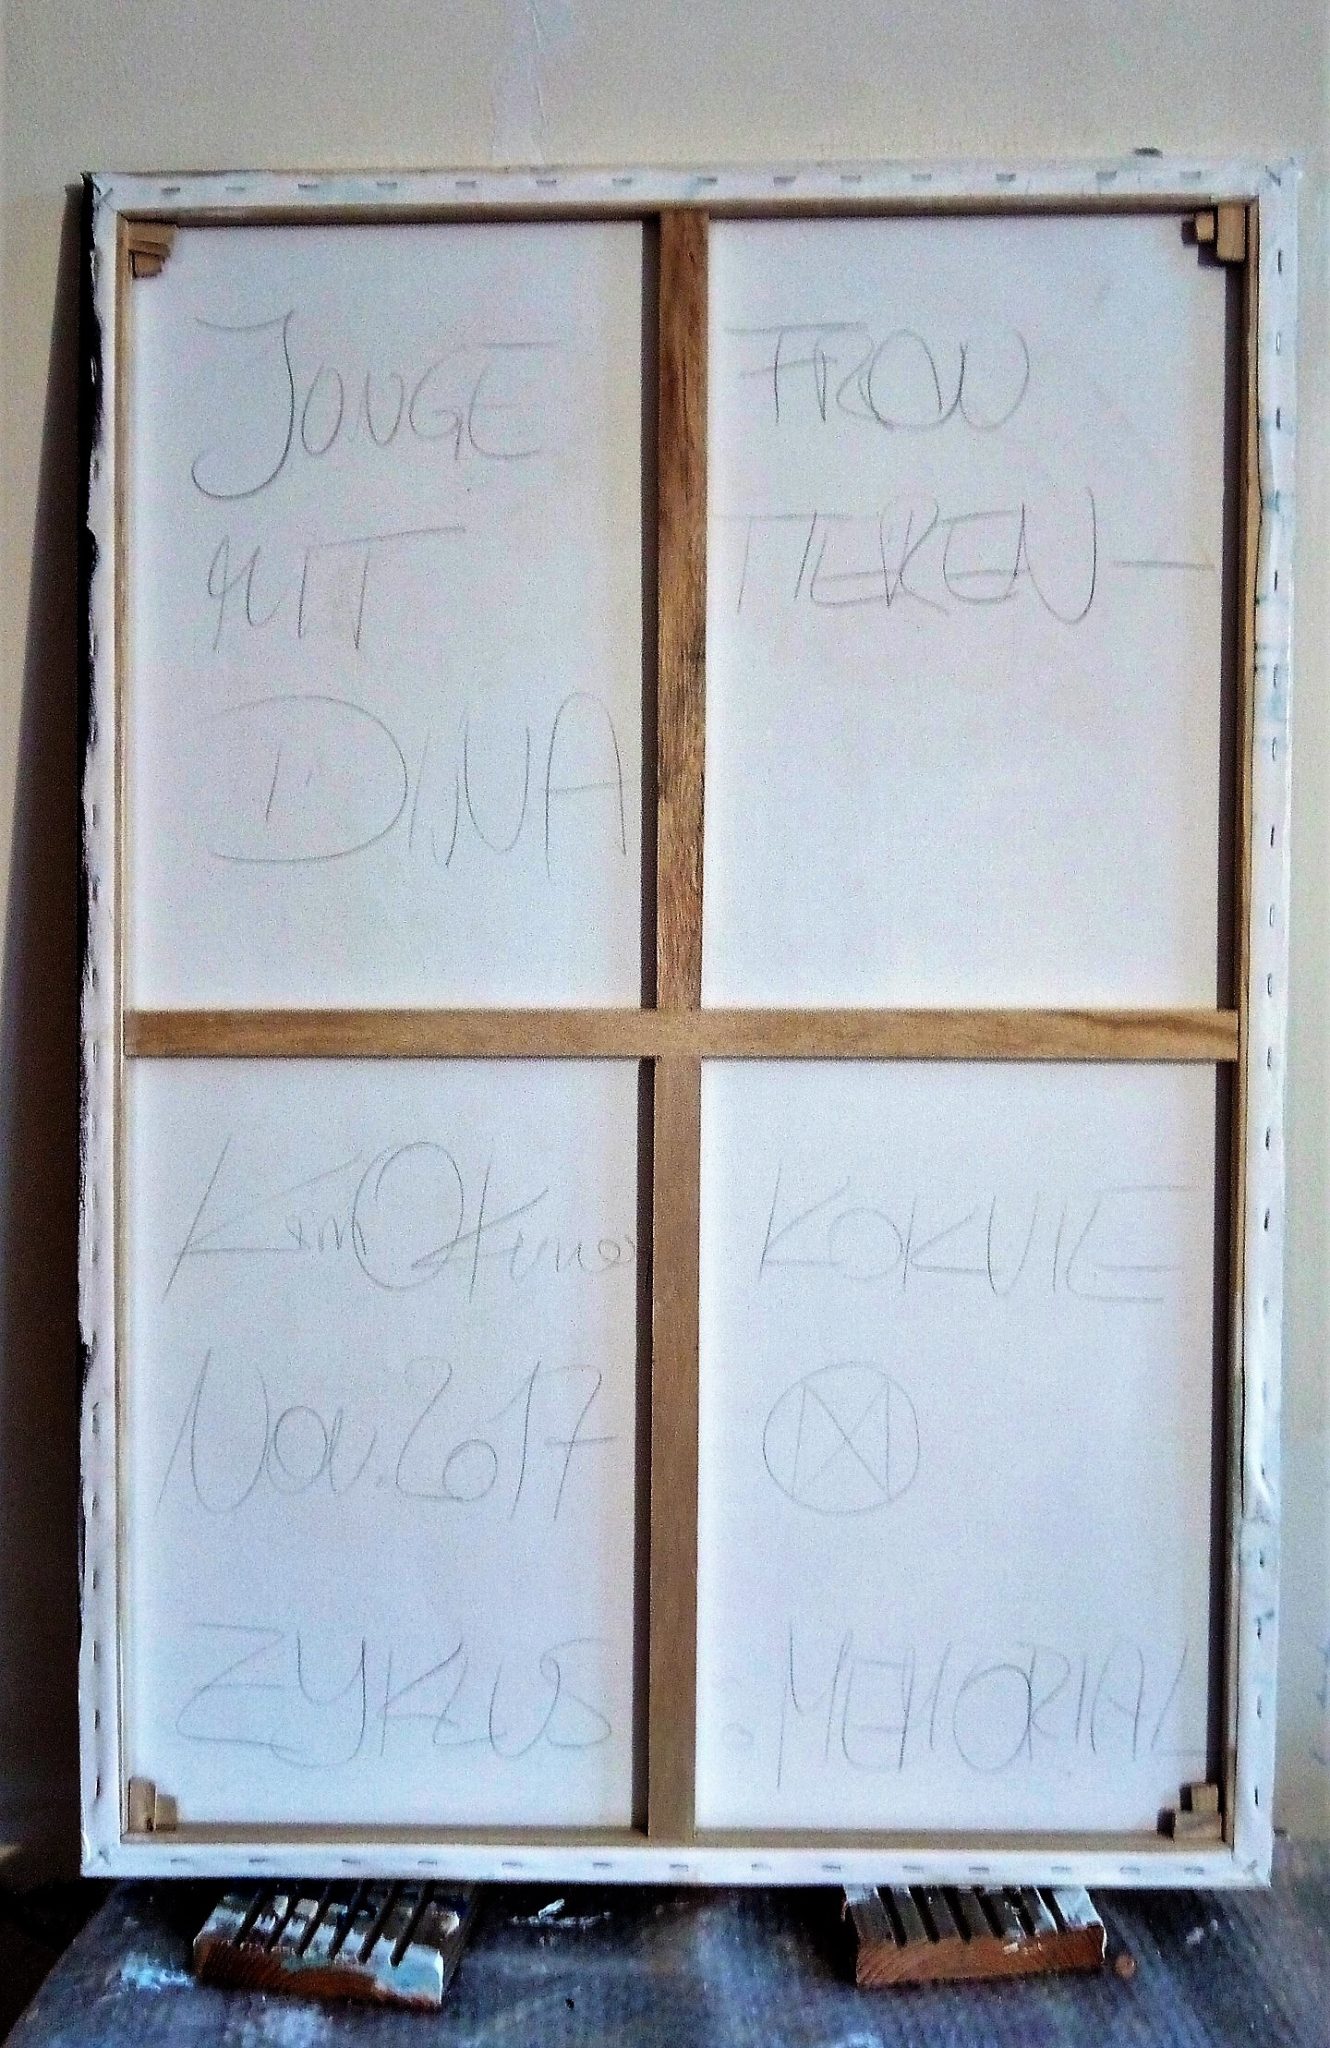 JUNGE FRAU
MIT TIEREN -
DINA
Kim KOKUIE
Nov. 2017
ZYKLUS . MEMORIAL